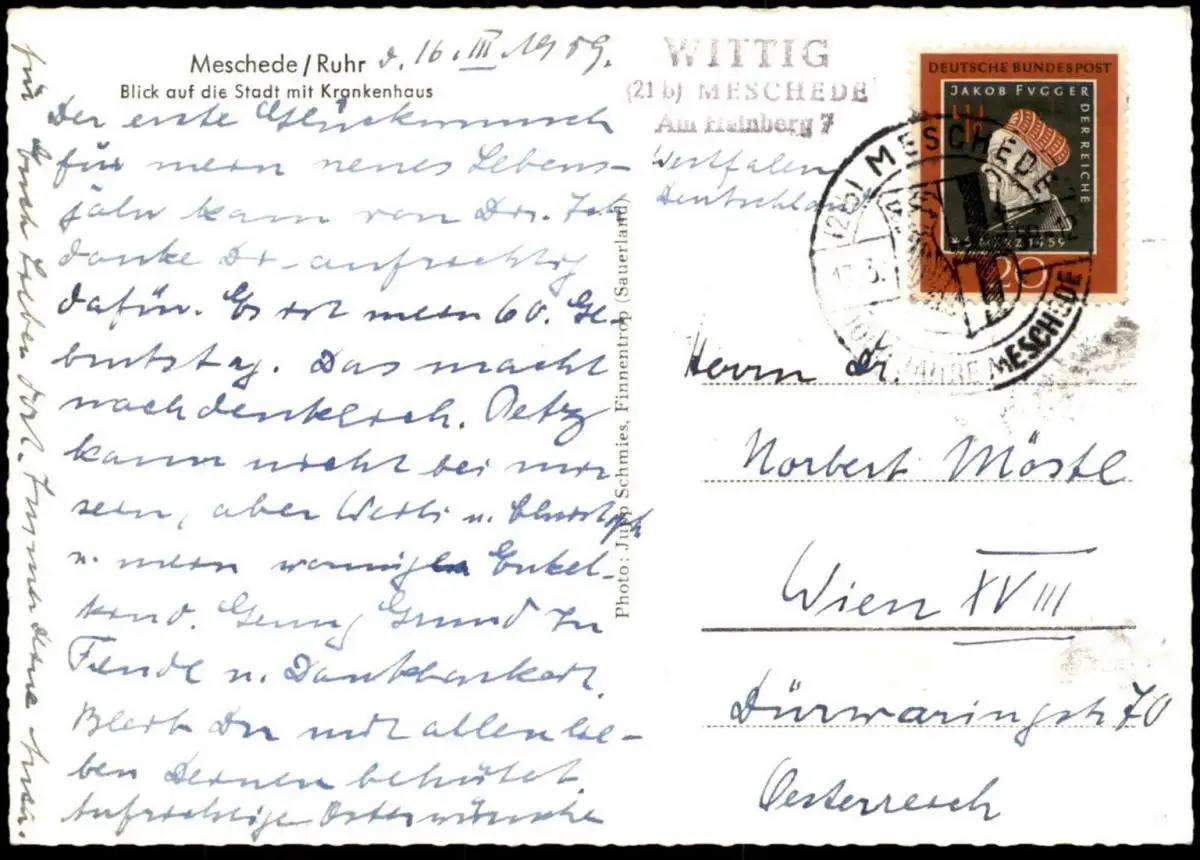 Meschede/Ruhr d. 16. III 1959.
Blick auf die Stadt mit Krankenhaus
Der erste Glückwunsch
für mein neues Lebens-
jahr kam von Dir. Ich
danke Dir aufrichtig
dafür. Es ist mein 60. Ge-
burtstag. Das macht
nachdenklich. Petz
kann nicht bei mir
sein, aber Werth u. Christoph
u. mein wonniges Enkel-
kind. Genug Grund zu
Freude u. Dankbarkeit.
Bleib Du mit allen lie-
ben Deinen behütet.
Aufrichtige Osterwünsche
für Euch Lieben dort. Immer Deine
Photo: Jupp Schmies, Finnentrop (Sauerland)
WITTIG
(21 b) MESCHEDE
Am Hainberg 7
Westfalen
Deutschland
DEUTSCHE BUNDESPOST
JAKOB FVGGER
DER REICHE
MÄRZ 1959
20
MESCHEDE
JAHRE MESCHEDE
Herrn Dr.
Norbert Möstl
Wien XVIII
Dürwaringstr 70
Oesterreich